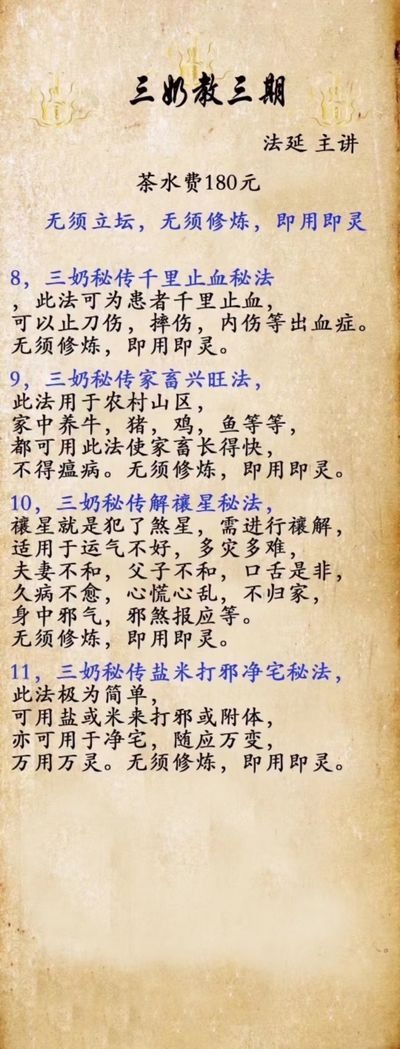 三奶教三期
法延 主讲
茶水费180元
无须立坛，无须修炼，即用即灵
8，三奶秘传千里止血秘法
，此法可为患者千里止血，
可以止刀伤，摔伤，内伤等出血症。
无须修炼，即用即灵。
9，三奶秘传家畜兴旺法，
此法用于农村山区，
家中养牛，猪，鸡，鱼等等，
都可用此法使家畜长得快，
不得瘟病。无须修炼，即用即灵。
10，三奶秘传解禳星秘法，
禳星就是犯了煞星，需进行禳解，
适用于运气不好，多灾多难，
夫妻不和，父子不和，口舌是非，
久病不愈，心慌心乱，不归家，
身中邪气，邪煞报应等。
无须修炼，即用即灵。
11，三奶秘传盐米打邪净宅秘法，
此法极为简单，
可用盐或米来打邪或附体，
亦可用于净宅，随应万变，
万用万灵。无须修炼，即用即灵。